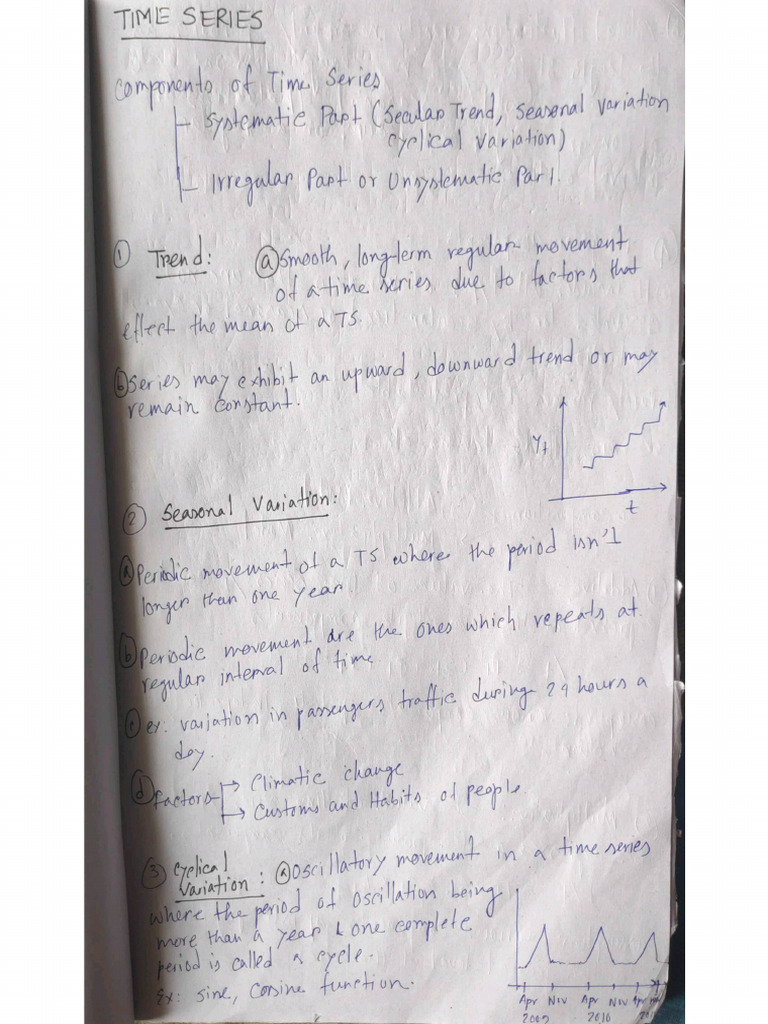 TIME SERIES
Components of Time Series
Systematic Part (Secular Trend, Seasonal Variation
cyclical variation)
Irregular Part or Unsystematic Part.
① Trend: ⓐ Smooth, long-term regular movement
of a time series due to factors that
effect the mean of a TS.
ⓑ Series may exhibit an upward, downward trend or may
remain constant.
Yt
t
② Seasonal Variation:
ⓐ Periodic movement of a TS where the period isn't
longer than one year.
ⓑ Periodic movement are the ones which repeats at
regular interval of time.
ⓒ ex: variation in passengers traffic during 24 hours a
day.
ⓓ Factors → Climatic change
→ Customs and Habits of people.
③ Cyclical ⓐ Oscillatory movement in a time series
Variation:
where the period of oscillation being
more than a year & one complete
period is called a cycle.
Ex: sine, cosine function.
Apr Nov Apr Nov Apr
2009 2010